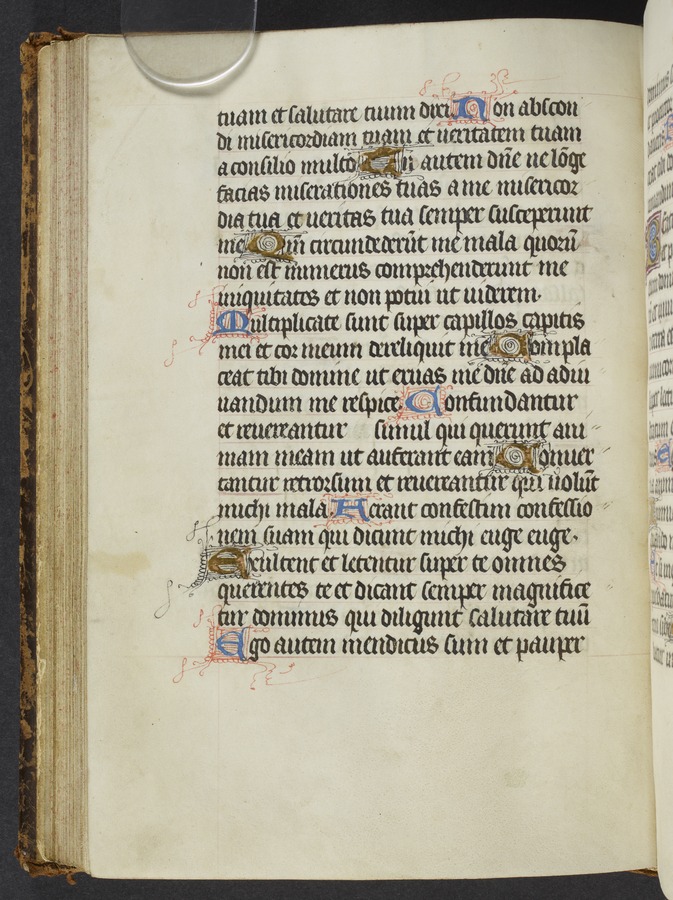 tuam et salutare tuum dixi Non abscon
di misericordiam tuam et ueritatem tuam
a consilio multo Tu autem dñe ne lõge
facias miserationes tuas a me misericor
dia tua et ueritas tua semper susceperunt
me Qm̃ circumdederũt me mala quorũ
non est numerus comprehenderunt me
iniquitates et non potui ut uiderem.
Multiplicate sunt super capillos capitis
mei et cor meum dereliquit me Compla
ceat tibi domine ut eruas me dñe ad adiu
uandum me respice Confundantur
et reuereantur simul qui querunt ani
mam meam ut auferant eam Conuer
tantur retrorsum et reuereantur qui uolũt
michi mala Ferant confestim confessio
nem suam qui dicunt michi euge euge.
Exultent et letentur super te omnes
querentes te et dicant semper magnifice
tur dominus qui diligunt salutare tuũ
Ego autem mendicus sum et pauper